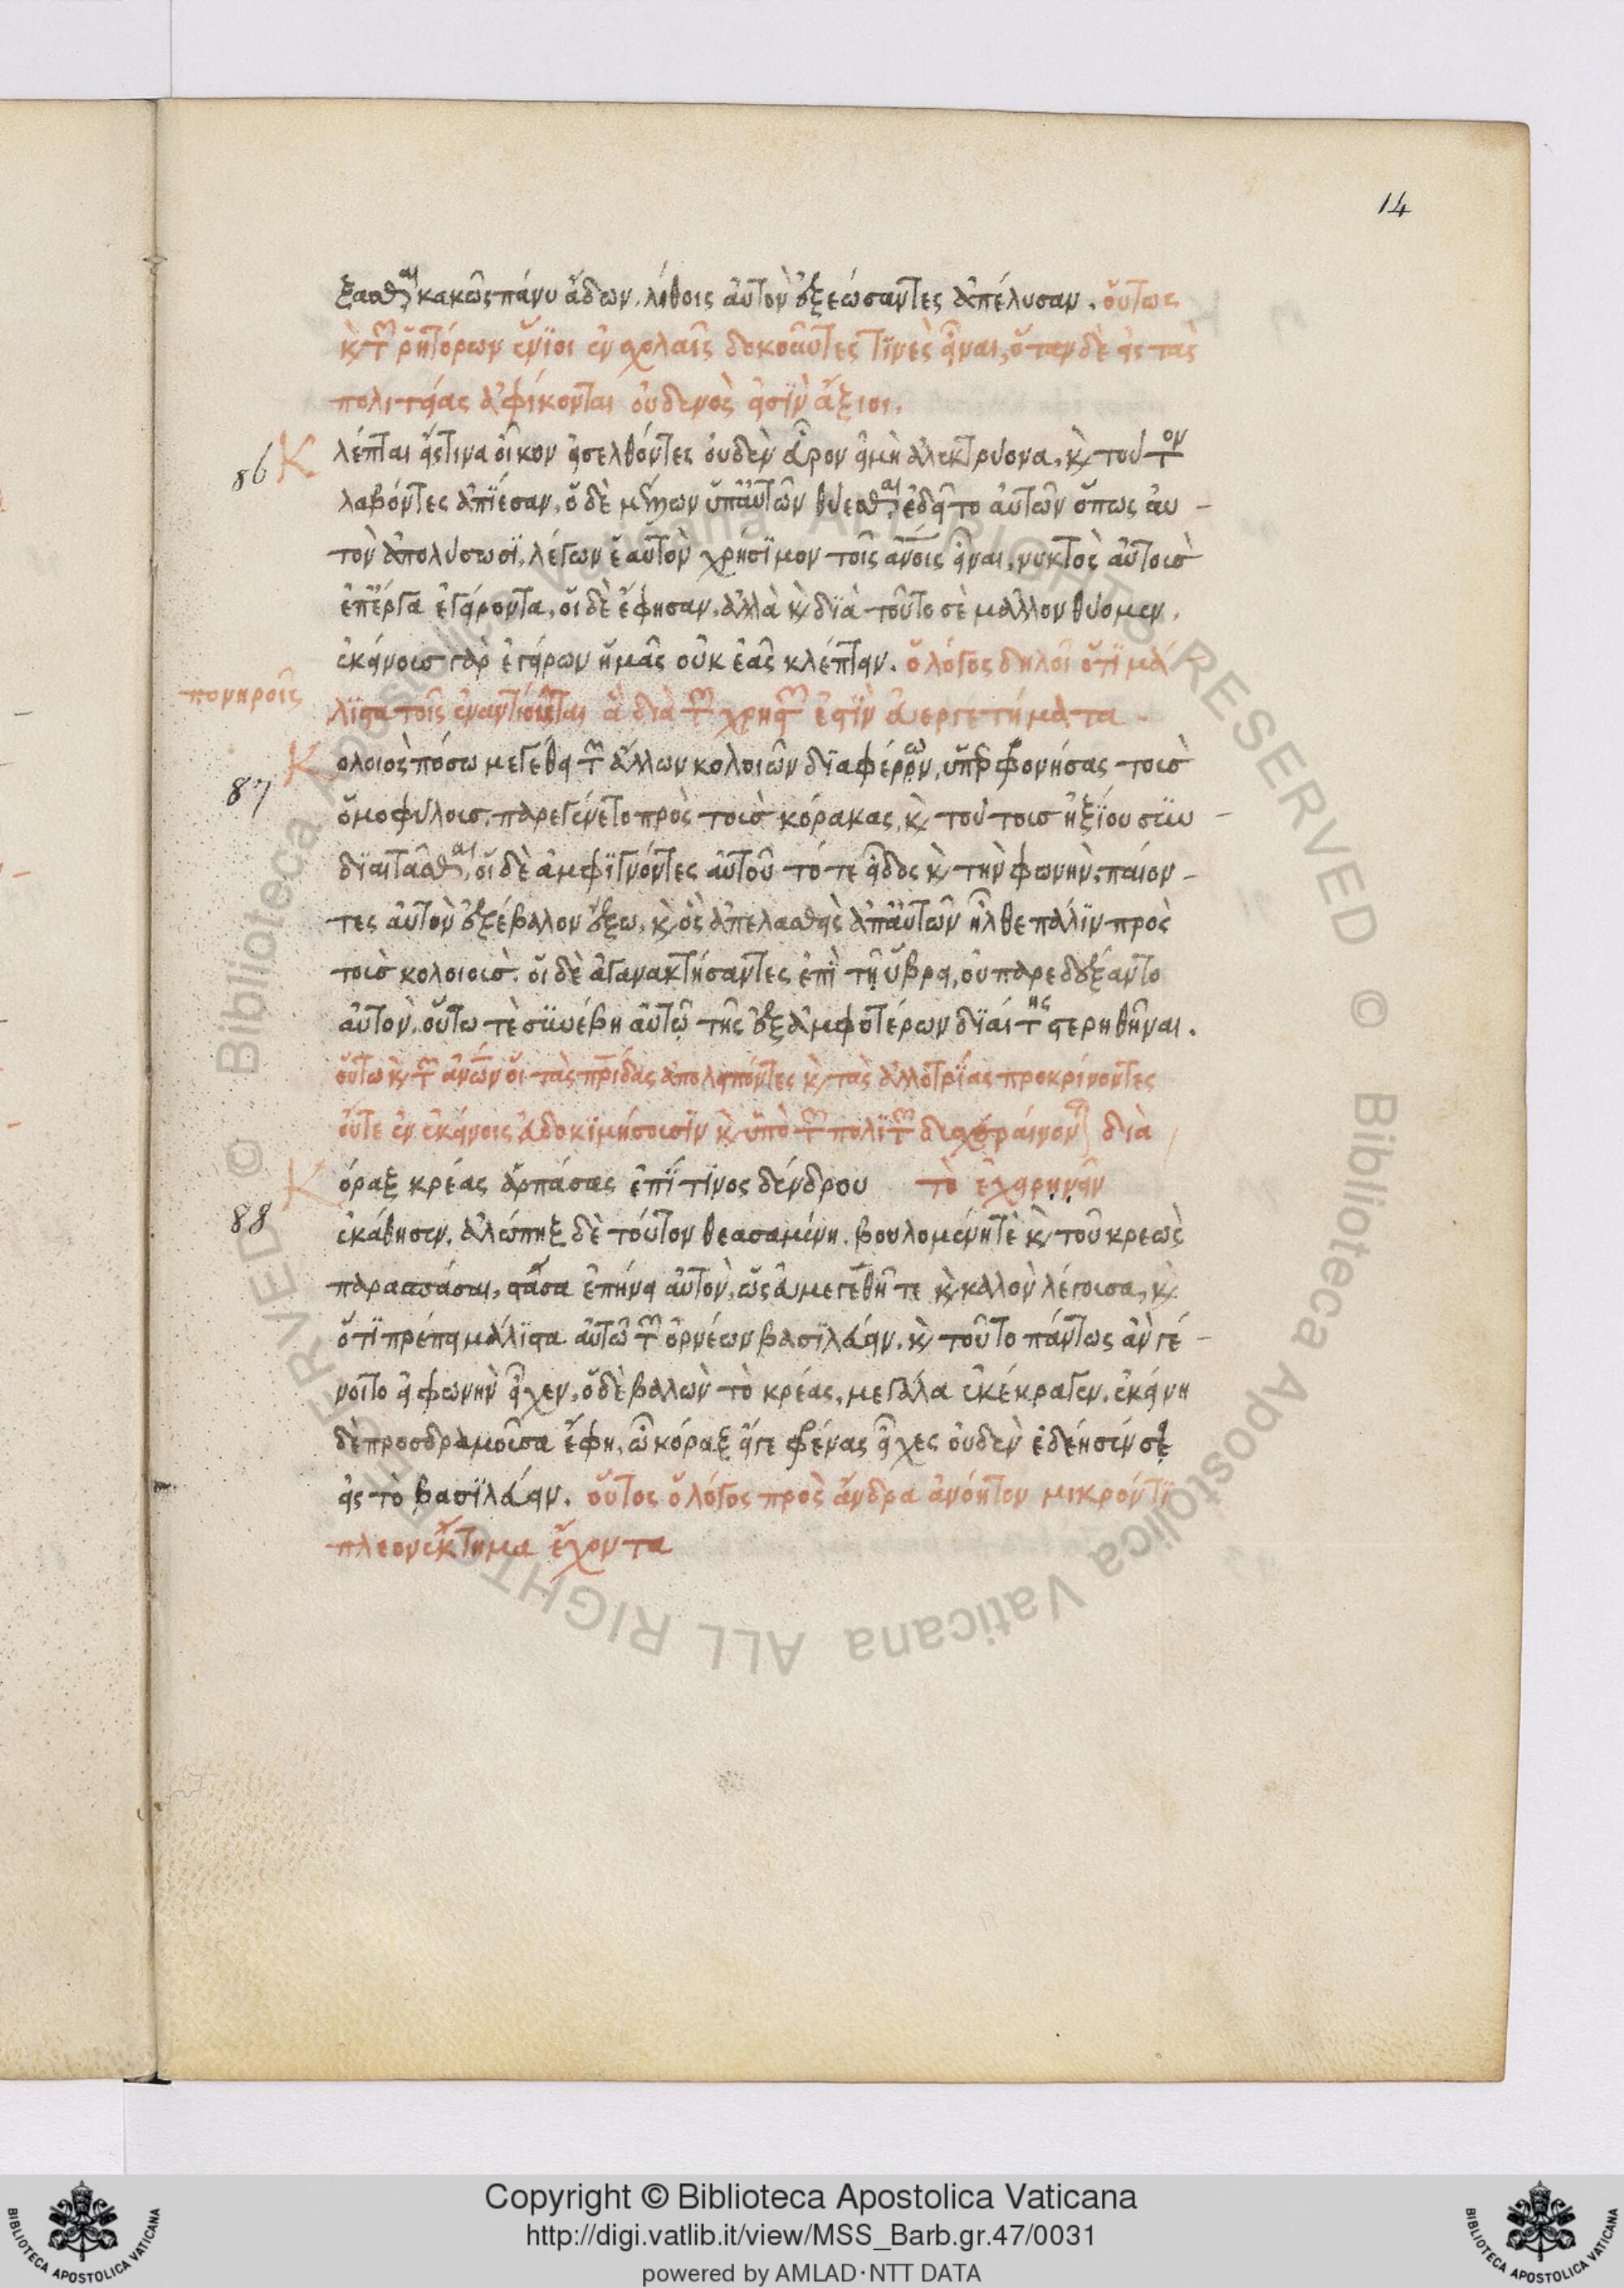 14
ξασθαι κακῶς πάνυ ἄδων. λίθοις αὐτὸν ἐξεώσαντες ἀπέλυσαν. οὕτως
κ(αὶ) τῶν ῥητόρων ἔνϊοι ἐν σχολαῖς δοκοῦντες τϊνὲς εἶναι, ὅταν δὲ εἰς τὰς
πολιτείας ἀφίκονται οὐδενὸς εἰσϊν ἄξιοι.
86 Κλέπται εἴς τινα οἶκον εἰσελθόντες οὐδὲν εὗρον εἰμὴ ἀλεκτρύονα, κ(αὶ) τοῦτον
λαβόντες ἀπϊέσαν, ὁ δὲ μέλλων ὑπ' αὐτῶν θύεσθαι ἐδεῖτο αὐτῶν ὅπως αὐ-
τὸν ἀπολύσωσϊ, λέγων ἑαυτὸν χρήσϊμον τοῖς ἀν(θρώπ)οις εἶναι, νυκτὸς αὐτοὺς
ἐπ' ἔργα ἐγείροντα, οἱ δὲ ἔφησαν, ἀλλὰ κ(αὶ) δϊὰ τοῦτο σὲ μᾶλλον θύομεν.
ἐκείνους γὰρ ἐγείρων ἡμᾶς οὐκ ἐᾶς κλέπτειν. ὁ λόγος δηλοῖ ὅτϊ μά-
πονηροῖς
λϊστα τοῖς ἐναντιοῦται ἃ διὰ τῶν χρηστῶν ἐστϊν εὐεργετήματα.
87 Κολοιὸς πόσω μεγέθει τῶν ἄλλων κολοιῶν δϊαφέρων, ὑπερφρονήσας τοὺς
ὁμοφύλους, παρεγένετο πρὸς τοὺς κόρακας, κ(αὶ) τούτοις ἠξίου συν-
δϊαιτᾶσθαι, οἱ δὲ ἀμφϊγνόντες αὐτοῦ τό τε εἶδος κ(αὶ) τὴν φωνὴν, παίον-
τες αὐτὸν ἐξέβαλον ἔξω, κ(αὶ) ὃς ἀπελασθεὶς ἀπ' αὐτῶν ἦλθε πάλϊν πρὸς
τοὺς κολοιοὺς. οἱ δὲ ἀγανακτήσαντες ἐπὶ τῇ ὕβρει, οὐ παρεδέξαντο
αὐτὸν. οὕτω τὲ συνέβη αὐτῷ τῆς ἐξ ἀμφοτέρων δϊαίτης στερηθῆναι.
οὕτω κ(αὶ) τῶν ἀν(θρώπ)ων οἱ τὰς π(ατ)ρίδας ἀπολειπόντες κ(αὶ) τὰς ἀλλοτρΐας προκρίνοντες
οὔτε ἐν ἐκείνοις εὐδοκϊμήσουσϊν κ(αὶ) ὑπὸ τῶν πολϊτῶν δυσχεραίνονται διὰ
τὸ ἐχειρηνεῖν
88 Κόραξ κρέας ἁρπάσας ἐπΐ τϊνος δένδρου
ἐκάθησεν. ἀλώπηξ δὲ τοῦτον θεασαμένη. βουλομένη τὲ κ(αὶ) τοῦ κρεὼς
παρασπάσαι, στᾶσα ἐπήνει αὐτὸν, ὡς εὐμεγέθη τε κ(αὶ) καλὸν λέγουσα, κ(αὶ)
ὅτϊ πρέπει μάλϊστα αὐτῷ τῶν ὀρνέων βασϊλεύειν. κ(αὶ) τοῦτο πάντως ἂν γέ-
νοιτο εἰ φωνὴν εἶχεν, ὁ δὲ βαλὼν τὸ κρέας, μεγάλα ἐκέκραγεν. ἐκείνη
δὲ προσδραμοῦσα ἔφη, ὦ κόραξ εἴγε φρένας εἶχες οὐδὲν ἐδέησέν σε
εἰς τὸ βασϊλεύειν. οὗτος ὁ λόγος πρὸς ἄνδρα ἀνόητον μικρόν τϊ
πλεονέκτημα ἔχοντα
Copyright © Biblioteca Apostolica Vaticana
http://digi.vatlib.it/view/MSS_Barb.gr.47/0031
powered by AMLAD·NTT DATA